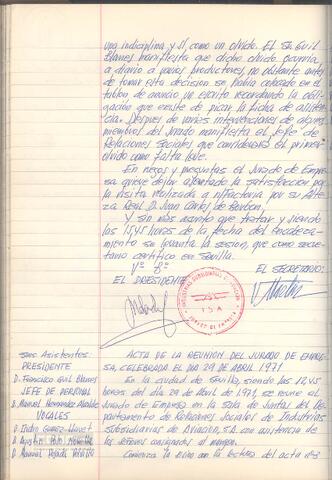 una indiciplina y sí, como un olvido. El Sr. Guil
Blanes manifiesta que dicho olvido ocurria
a diario a varios productores, no obstante antes
de tomar esta decision se habia colocado en el
tablon de anuncio un escrito recordando la obli-
gación que existe de picar la ficha de asisten-
cia. Despues de varios intervenciones de algunos
miembros del Jurado manifiesta el Jefe de
Relaciones sociales que consideraros el primer
olvido como falta leve.
En ruegos y preguntas el Jurado de Empre-
sa quiere dejar asentado la satisfaccion por
la visita realizada a nfactoria por su Alte-
za Real D. Juan Carlos de Borbon.
Y sin más asunto que tratar y siendo
las 15,45 horas de la fecha del encabeza-
miento se levanta la sesion, que como secre-
tario certifico en Sevilla.
Vº Bº
EL PRESIDENTE
EL SECRETARIO:
ISA
JURADO DE EMPRESA
Sres. Asistentes:
PRESIDENTE
D. Francisco Guil Blanes
JEFE DE PERSONAL
D. Manuel Hernandez
VOCALES
D. Isidro Gomez
D. Agustin
D. Manuel
ACTA DE LA REUNION DEL JURADO DE EMPRE-
SA, CELEBRADA EL DIA 29 DE ABRIL 1971
En la ciudad de Sevilla, siendo las 12,45
horas del dia 29 de Abril de 1971, se reune el
Jurado de Empresa en la sala de Juntas del De-
partamento de Relaciones Sociales de Industrias
Subsidiarias de Aviacion, S.A. con asistencia de
los señores consignados al margen.
Comienza la reunion con la lectura del acta nº3